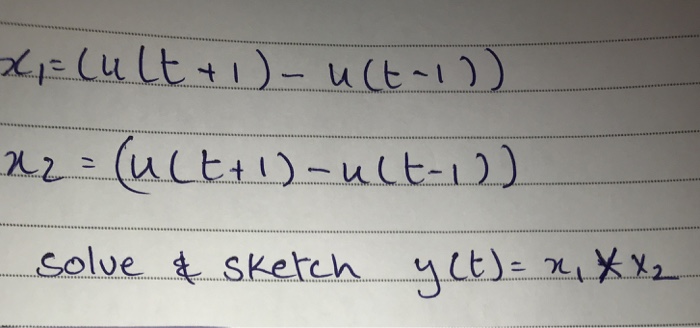 x₁=(u(t+1)-u(t-1))
x2=(u(t+1)-u(t-1))
solve & sketch y(t)=x₁*x₂